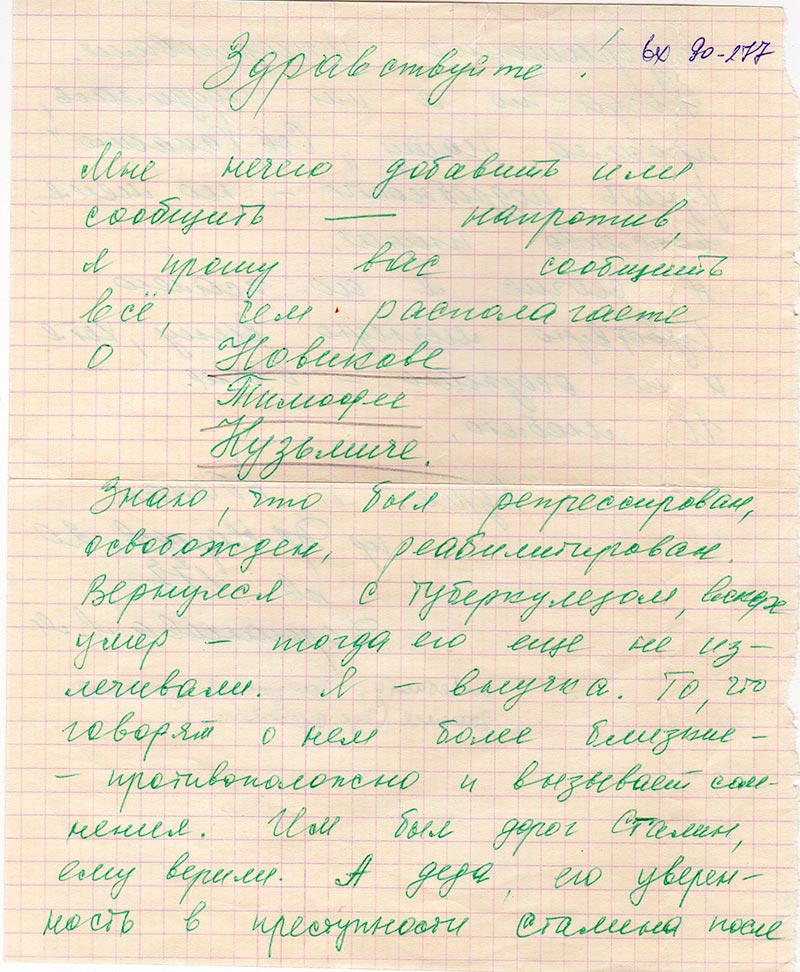 Здравствуйте!
вх 90-177
Мне нечего добавить или
сообщить — напротив,
я прошу вас сообщить
всё, чем располагаете
о Новикове
Тимофее
Кузьмиче.
Знаю, что был репрессирован,
освобожден, реабилитирован.
Вернулся с туберкулезом, вскоре
умер — тогда его еще не из-
лечивали. Я — внучка. То, что
говорят о нем более близкие -
- противоположно и вызывает сом-
нения. Им был дорог Сталин,
ему верили. А деда, его уверен-
ность в преступности Сталина после